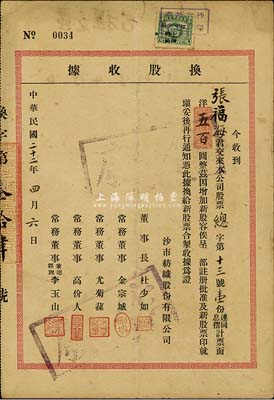 No 0034
換股收據
今收到
張福海君交來本公司股票總字第十三號壹份連同息摺計票面
洋五百圓整茲因增加新股容俟呈部註册批准及新股票印就
塡妥後再行通知憑此據換給新股票合掣收據爲證
沙市紡織股份有限公司
董事長 杜少如
常務董事 金宗城
常務董事 尤菊蓀
常務董事 高价人
常務董事兼總經理 李玉山
中華民國二十二年四月六日
上海陽明拍賣